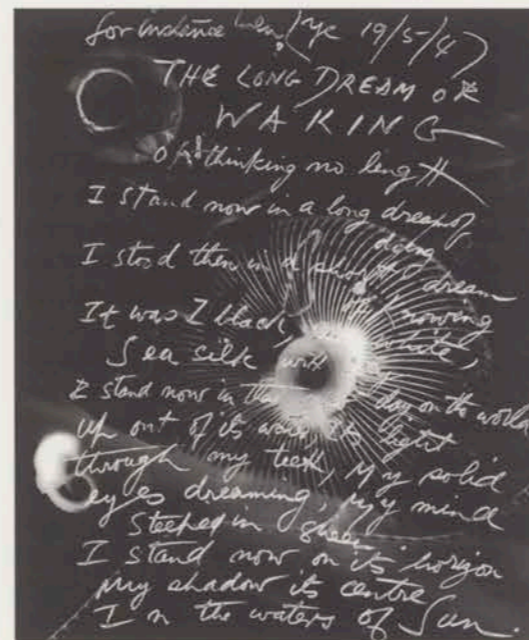 for instance Len (Lye 19/5/47)
THE LONG DREAM OR
WAKING
or thinking no length
I stand now in a long dream of
doing
I stood then in a short dream
of nowing
It was I black, white,
Sea silk with
I stand now in the day on the world
up out of its water its light
through my teeth, My solid
eyes dreaming, My mind
Steeped in
I stand now on its horizon
My shadow its centre
In the waters of Sun.